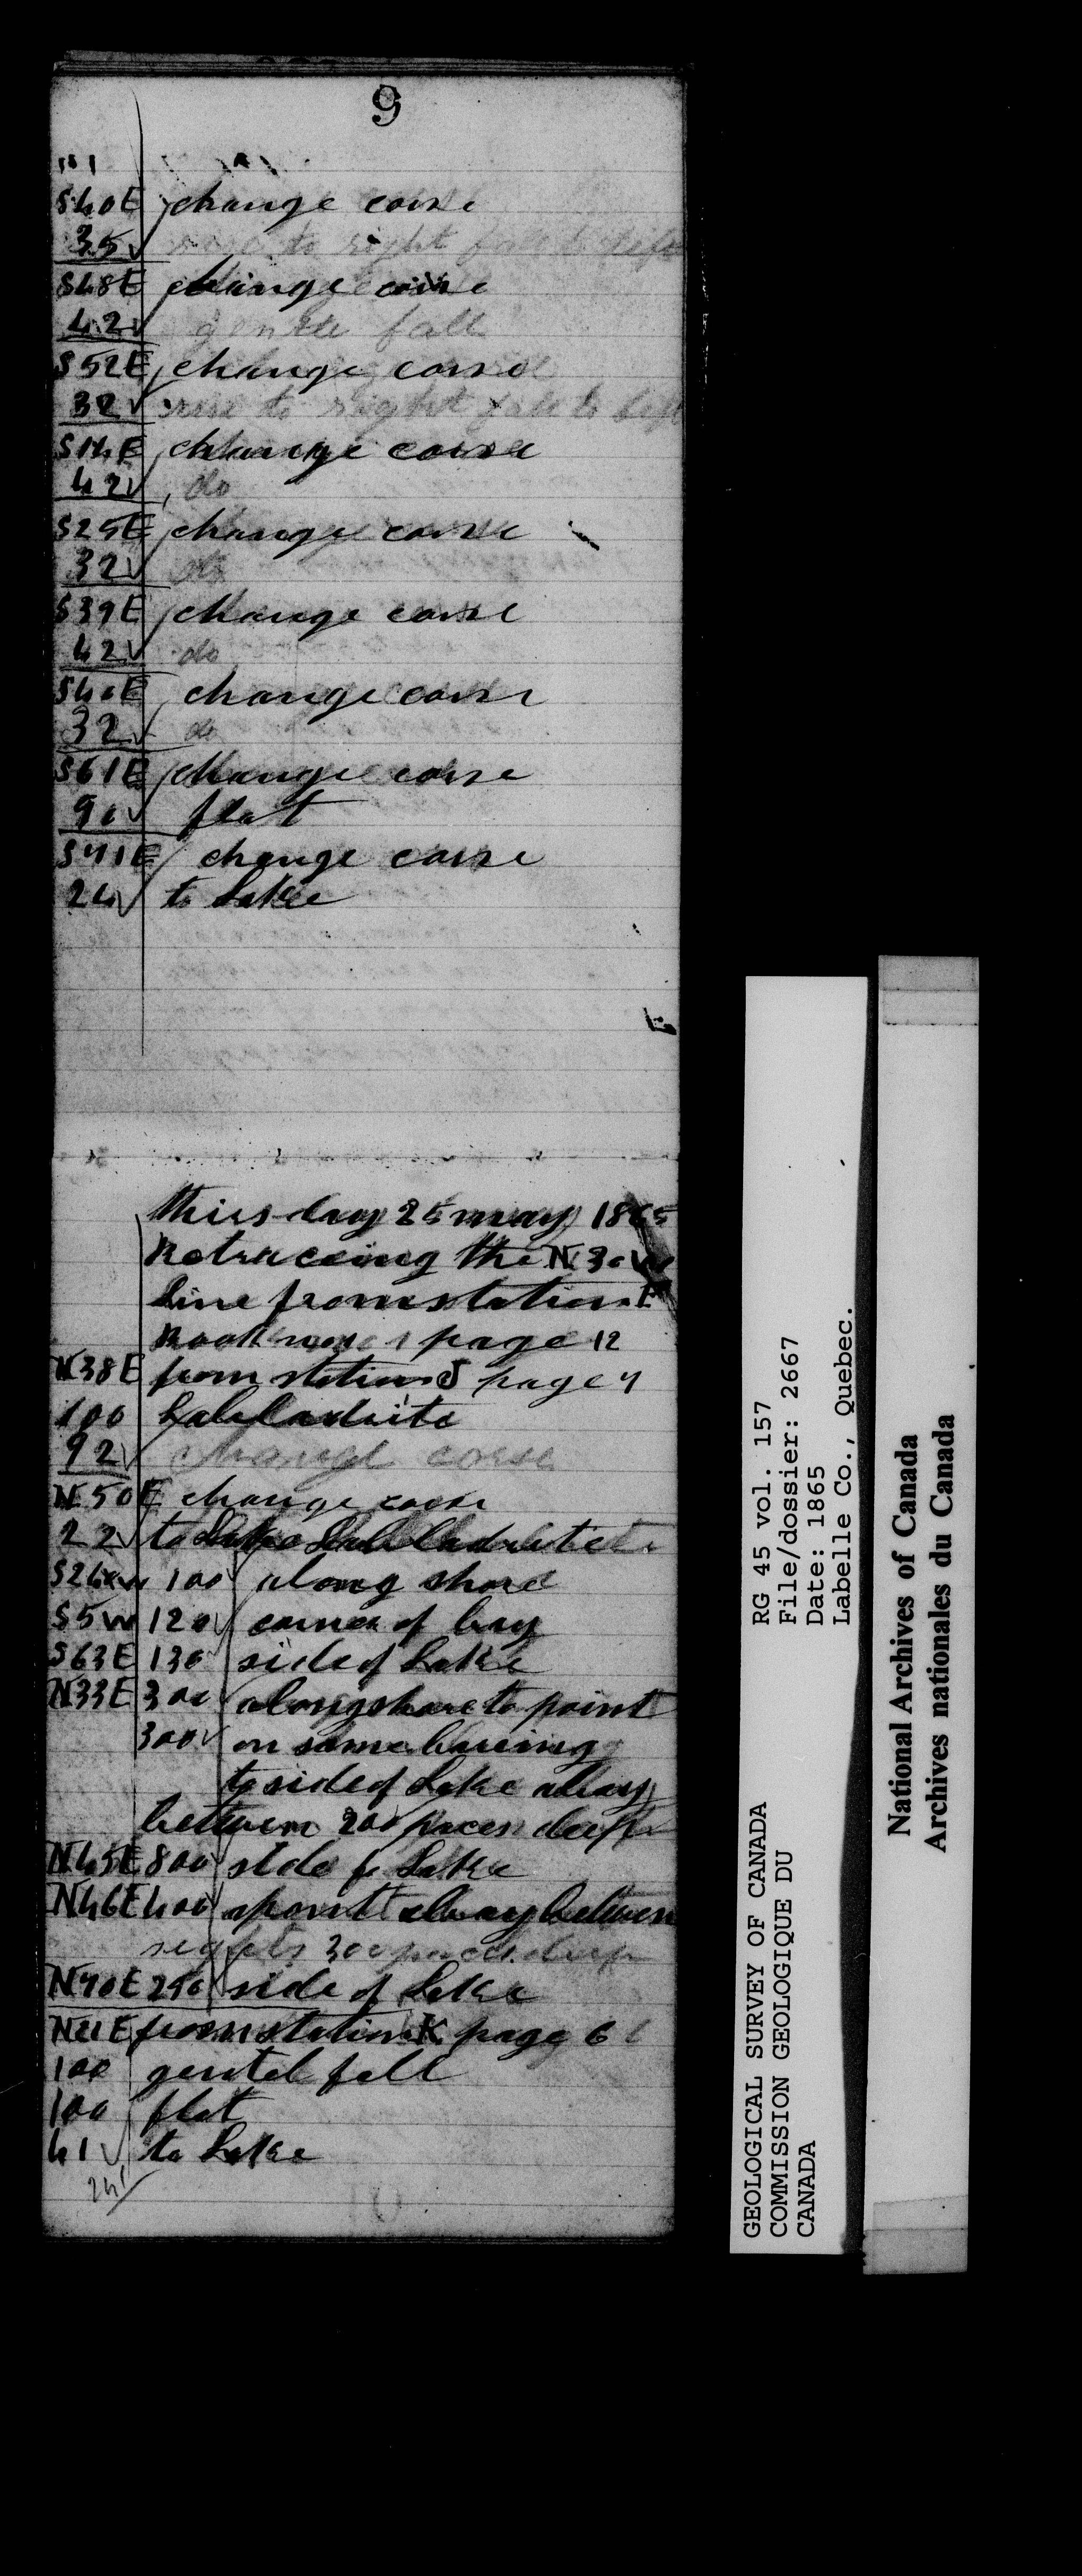 9
S40E change corse
35 rise to right fall to left
S48E change corse
42 gentle fall
S52E change corse
32 rise to right fall to left
S14E change corse
42 do
S25E change corse
32 do
S39E change corse
42 do
S40E change corse
32 do
S61E change corse
90 flat
S71E change corse
24 to Lake
thirsday 25 may 1865
Retraceing the N30W
Line from station
Book 1 page 12
N38E from station J page 7
100 Labladrite
92 change corse
N50E change corse
22 to Lake Labladrite
S26W 100 along shore
S5W 120 corner of bay
S63E 130 side of Lake
N33E 300 along shore to point
300 on same bareing
to side of Lake abay
between 200 paces deep
N45E 800 side of Lake
N46E 400 apoint abay between
300 paces deep
N70E 250 side of Lake
from station K page 6
100 gentel fall
100 flat
41 to Lake
241
GEOLOGICAL SURVEY OF CANADA
COMMISSION GEOLOGIQUE DU
CANADA
RG 45 vol. 157
File/dossier: 2667
Date: 1865
Labelle Co., Quebec.
National Archives of Canada
Archives nationales du Canada